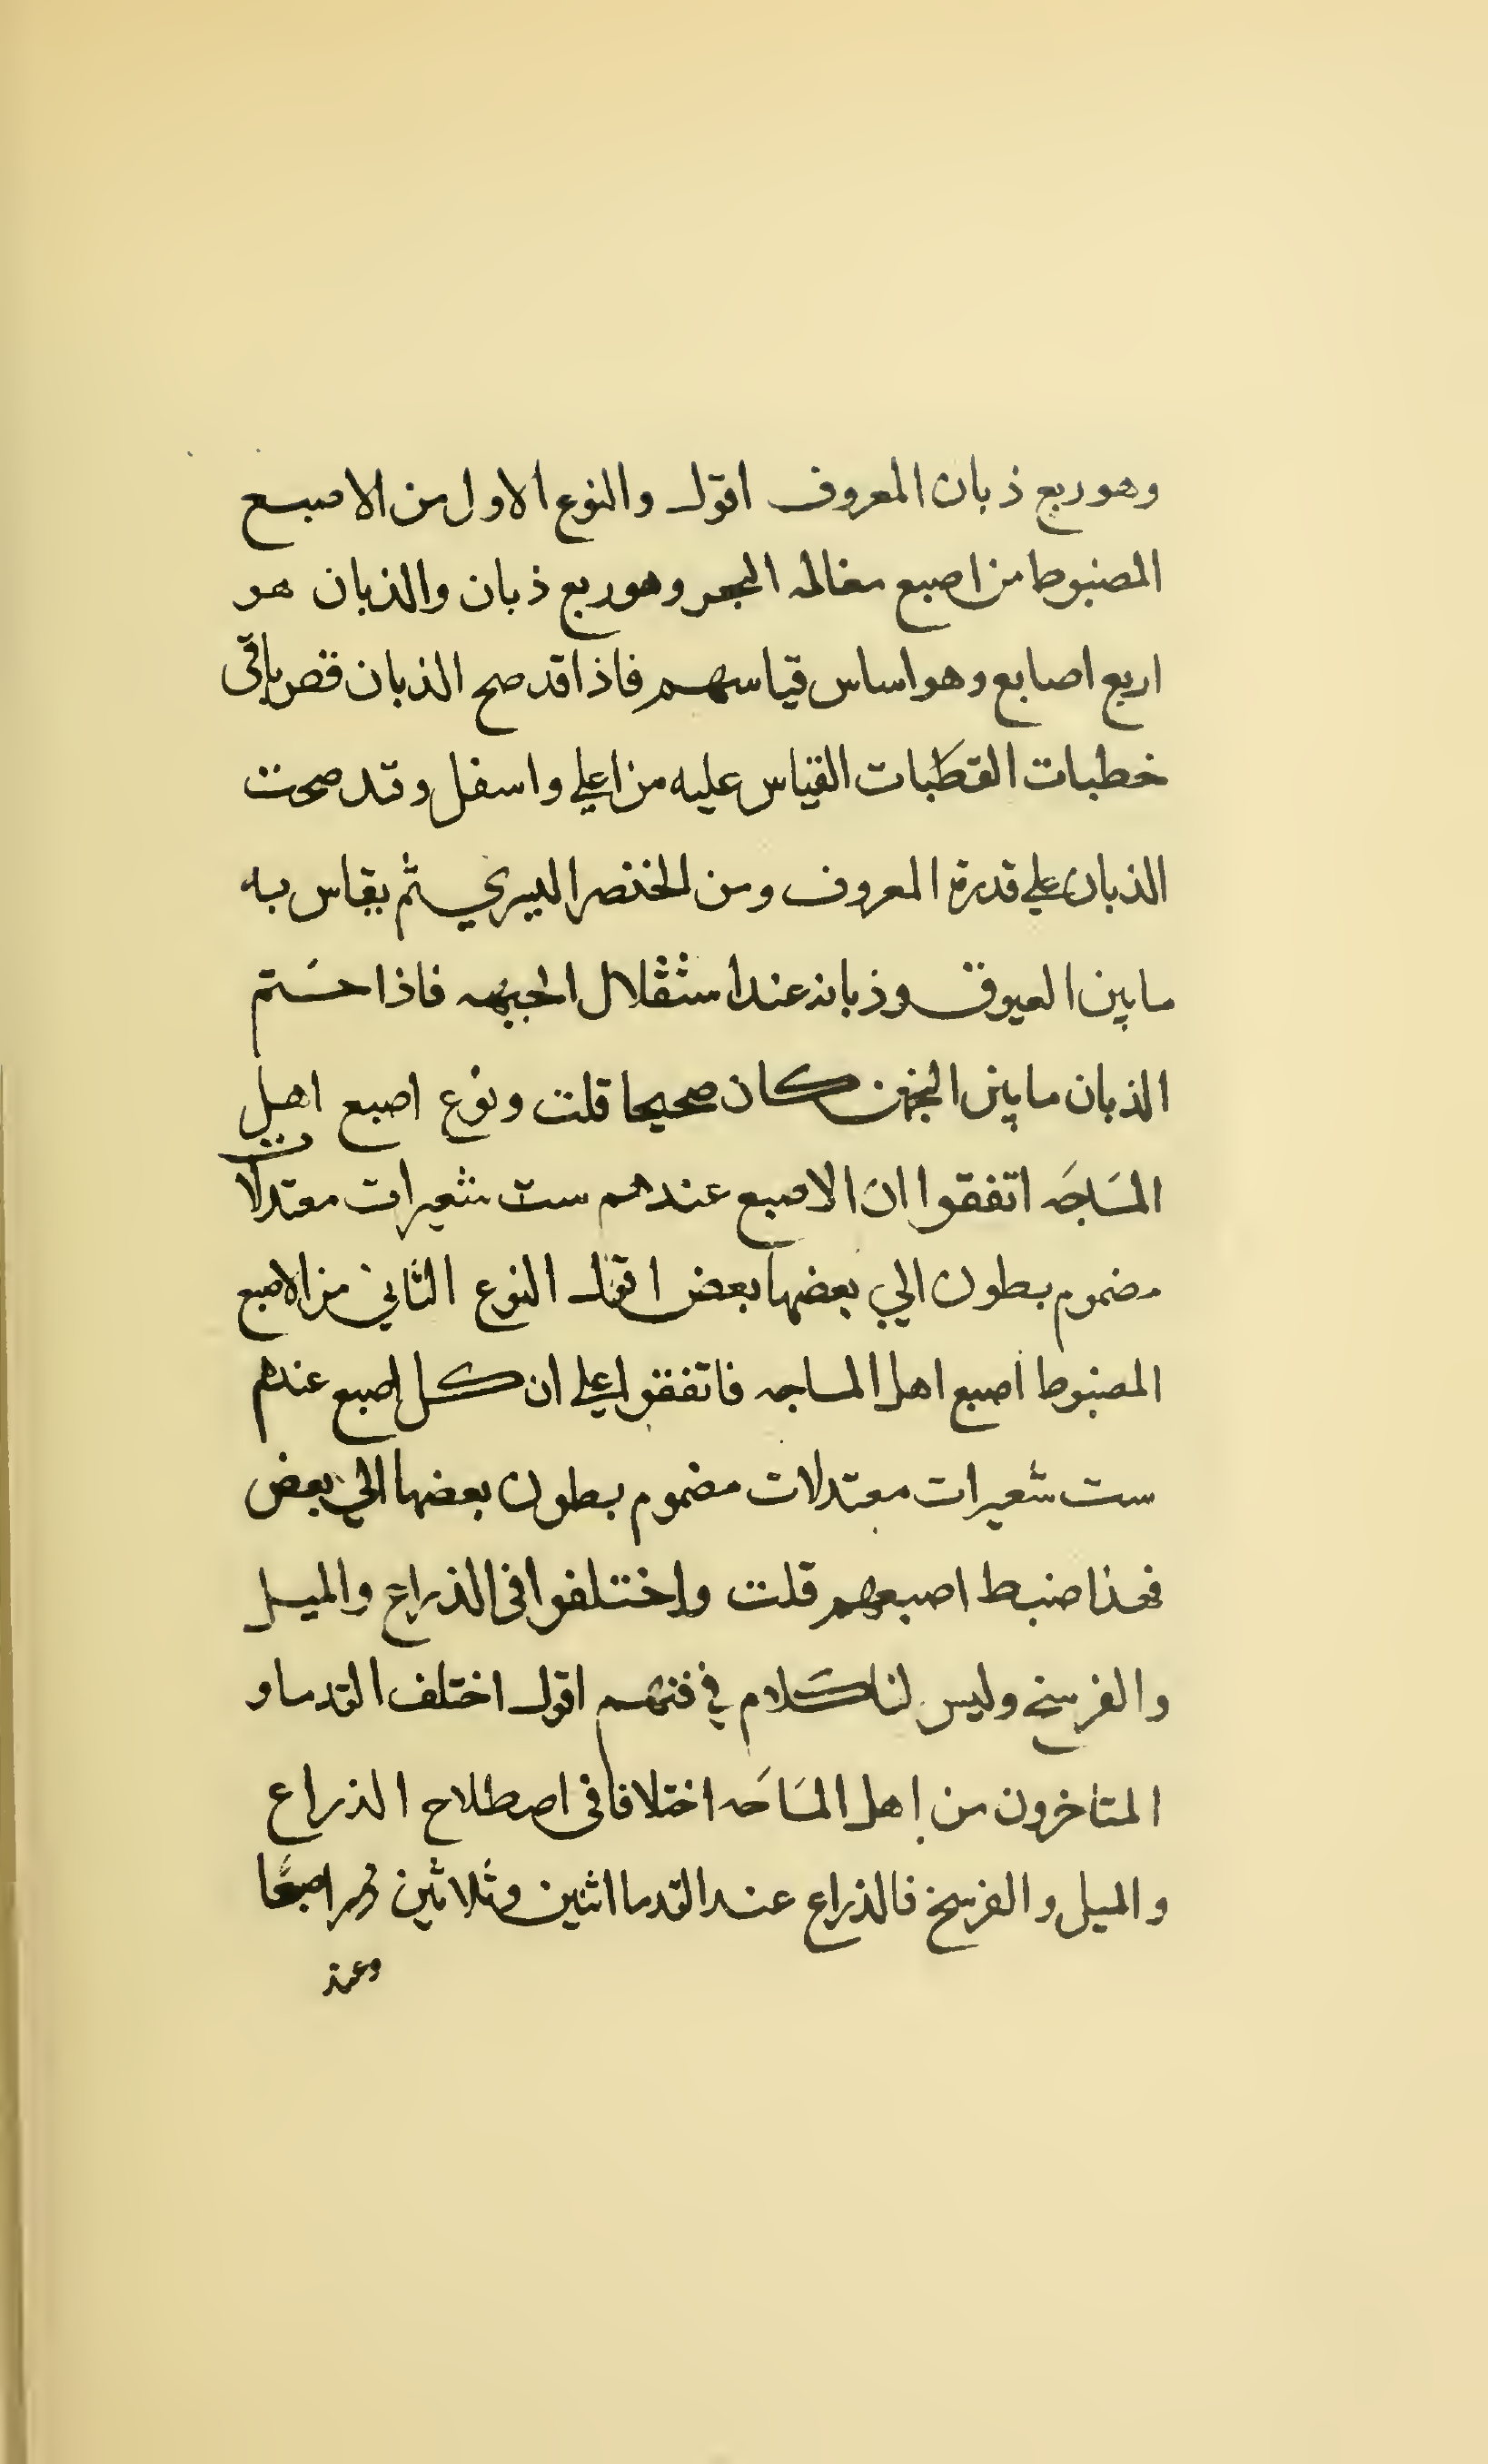 وهو ربع ذبان المعروف اقول والنوع الاول من الاصبع
المضبوط من اصبع معالمه البحر وهو ربع ذبان والذبان هو
اربع اصابع وهو اساس قياسهم فاذا قد صح الذبان فصر باقي
خطبات القطبات القياس عليه من اعلي واسفل وقد صحت
الذبان علي قدرة المعروف ومن الخنصر اليسري ثم يقاس به
ما بين العيوق وذبانه عند استقلال الجبهه فاذا ختم
الذبان ما بين النجمين كان صحيحا قلت ونوع اصبع اهل
المساحه اتفقوا ان الاصبع عندهم ست شعيرات معتدلات
مضموم بطون الي بعضها بعض اقول النوع الثاني من الاصبع
المضبوط اصبع اهل المساحه فاتفقوا علي ان كل اصبع عندهم
ست شعيرات معتدلات مضموم بطون بعضها الي بعض
فهذا ضبط اصبعهم قلت واختلفوا في الذراع والميل
والفرسخ وليس لنا كلام في فنهم اقول اختلف القدما و
المتاخرون من اهل المساحه اختلافا في اصطلاح الذراع
والميل والفرسخ فالذراع عند القدما اثنين وثلاثين اصبعا
وعند